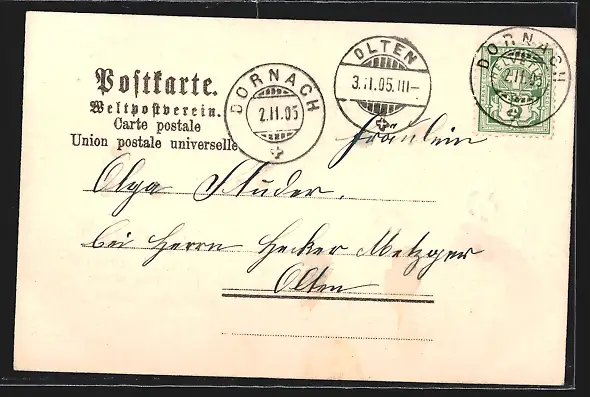 Postkarte.
Weltpostverein.
Carte postale
Union postale universelle
DORNACH
2.II.05
OLTEN
3.II.05.III-
DORNACH
2.II.05
Fräulein
Olga Studer.
bei Herrn Hecker Metzger
Olten